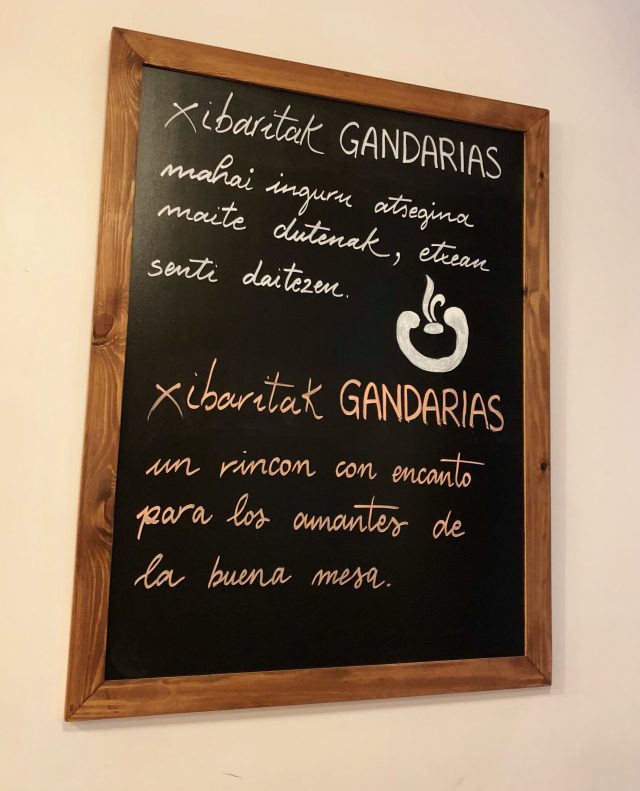 xibaritak GANDARIAS
mahai inguru atsegina
maite dutenak, etxean
senti daitezen.
xibaritak GANDARIAS
un rincon con encanto
para los amantes de
la buena mesa.